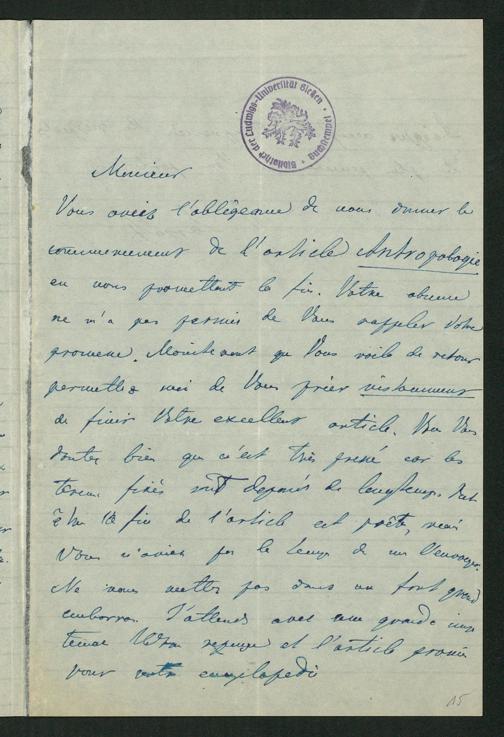 Bibliothek der Ludwigs-Universität Giessen • Handschriften
Monsieur
Vous aviez l'obligeance de nous donner le
commencement de l'article Antropologie
en nous promettant la fin. Votre absence
ne m'a pas permis de Vous rappeler Votre
promesse. Maintenant que Vous voilà de retour
permettez moi de Vous prier
de finir Votre excellent article. Vous Vous
doutez bien que c'est très pressé car les
termes fixés sont depuis de longtemps.
la fin de l'article est prête, mais
Vous n'aviez pas le temps de nous l'envoyer.
Ne nous mettez pas dans un fort grand
embarras. J'attends avec une grande
Votre reponse et l'article promis
pour notre encyclopedie
15